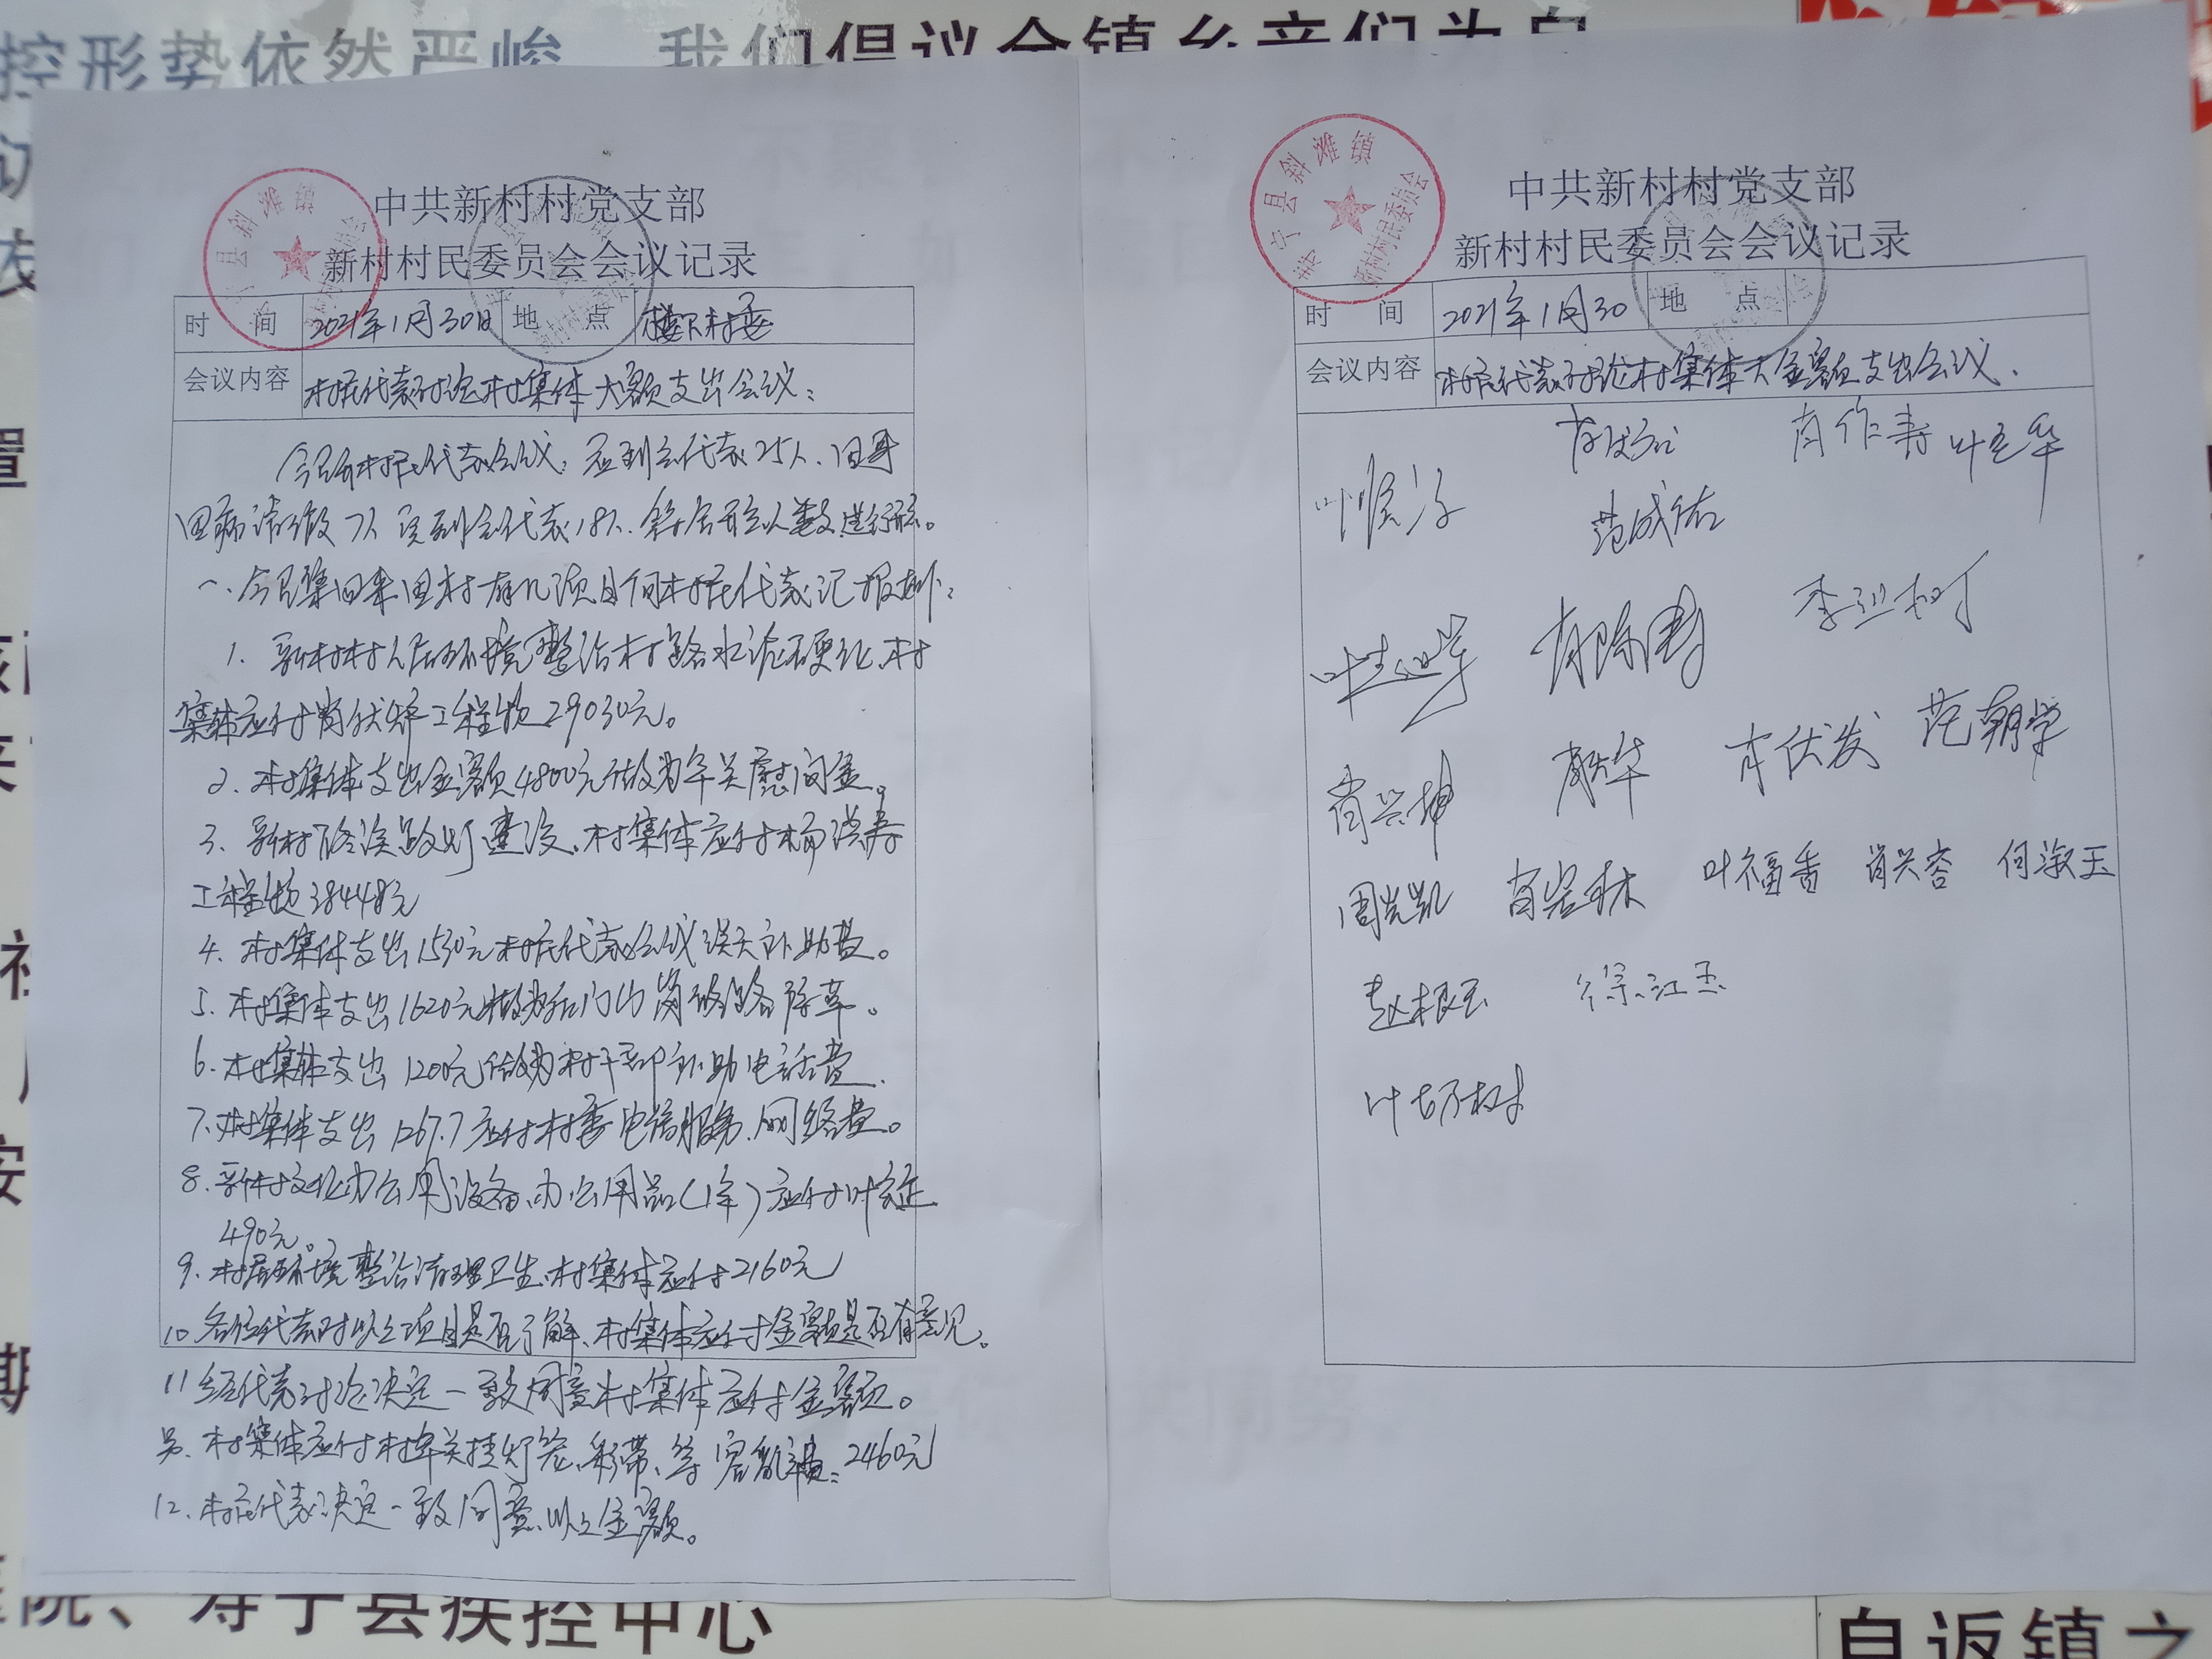 控形势依然严峻 我们倡议全镇乡亲们为自
中共新村村党支部
新村村民委员会会议记录
时 间 2021年1月30日 地 点 楼下村委
会议内容 村民代表讨论村集体大额支出会议:
今召开村民代表会议,应到会代表25人,因事
因病请假7人 实到会代表18人,符合开会人数,进行开会。
一、今召集回来因村有几项目向村民代表汇报如下:
1. 新村村人居环境整治村道路水泥硬化,村
集体应付肖伏矫工程款29030元。
2. 村集体支出金额4800元做为年关慰问金。
3. 新村修设路灯建设,村集体应付杨洪寿
工程款38448元
4. 村集体支出1530元村民代表会议误工补助费。
5. 村集体支出1620元做为后门山岗路除草。
6. 村集体支出1200元做为村干部补助电话费.
7. 村集体支出1267.7应付村委电信服务、网络费。
8. 新村文化办公用设备、办公用品(1年)应付叶
490元。
9. 村居环境整治清理卫生,村集体应付2160元
10 各位代表对以上项目是否了解,村集体应付金额是否有意见。
11 经代表讨论决定一致同意村集体应付金额。
另. 村集体应付村年关挂灯笼、彩带、等 2460元
12. 村民代表决定一致同意以上金额。
寿宁县斜滩镇
新村村民委员会
中共新村村党支部
新村村民委员会会议记录
时 间 2021年1月30 地 点
会议内容 村民代表讨论村集体大金额支出会议.
肖作寿
范成佑
肖兴坤 肖伏发 范朝学
周光凯 叶福香 肖兴容 何淑玉
赵根玉 徐江玉
院、寿宁县疾控中心
自返镇之